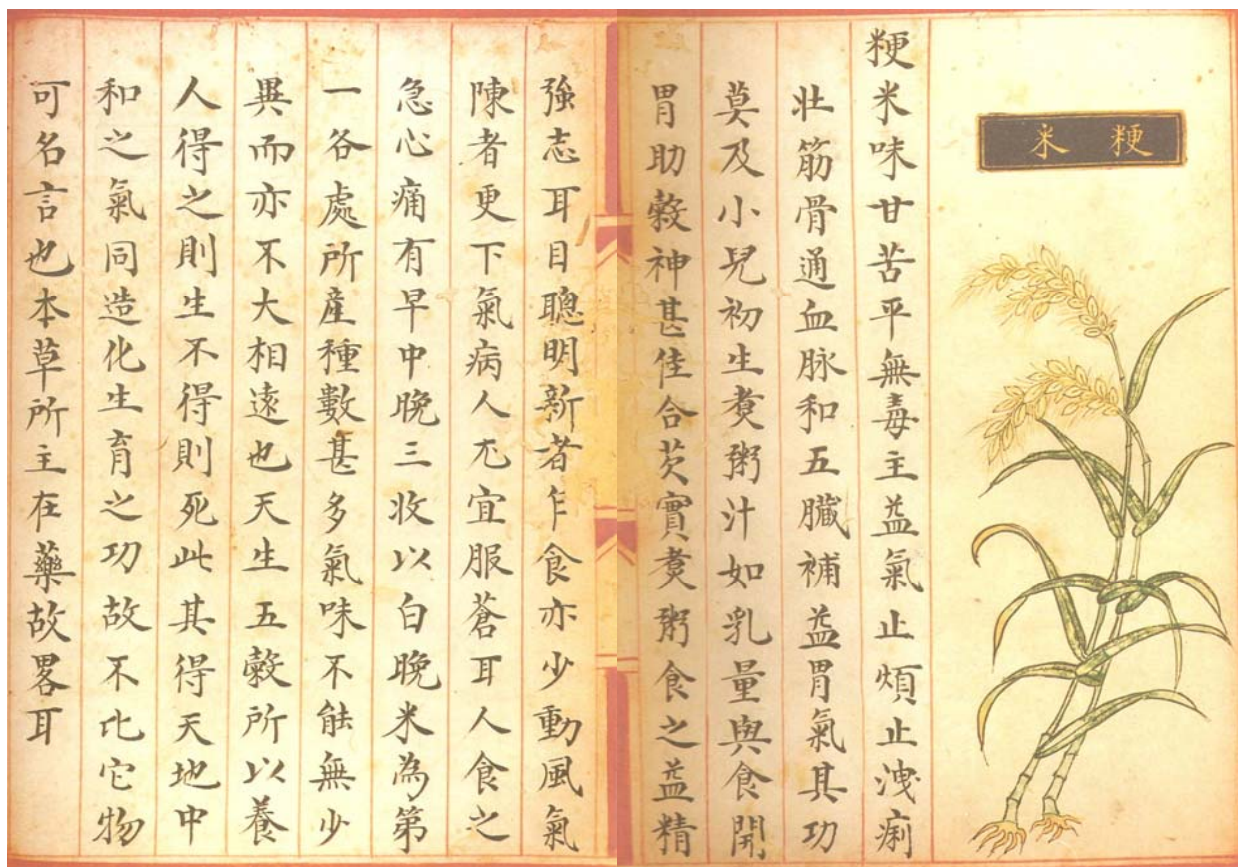 粳米
粳米味甘苦平無毒主益氣止煩止洩痢
壯筋骨通血脉和五臟補益胃氣其功
莫及小兒初生煑粥汁如乳量與食開
胃助糓神甚佳合芡實煑粥食之益精
強志耳目聰明新者乍食亦少動風氣
陳者更下氣病人尤宜服蒼耳人食之
急心痛有早中晚三收以白晚米為第
一各處所産種數甚多氣味不能無少
異而亦不大相遠也天生五糓所以養
人得之則生不得則死此其得天地中
和之氣同造化生育之功故不比它物
可名言也本草所主在藥故畧耳